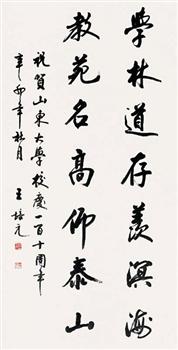 學林道存羨溟海
教苑名高仰泰山
祝賀山東大學校慶一百十周年
辛卯年秋月 王培元